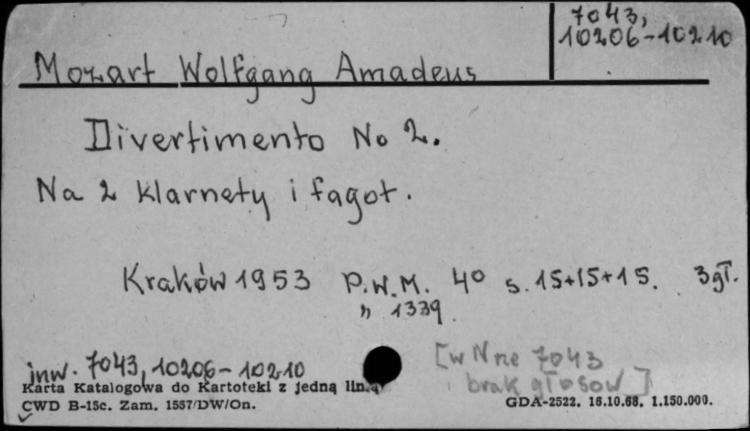 7043,
10206-10210
Mozart Wolfgang Amadeus
Divertimento No 2.
Na 2 klarnety i fagot.
Kraków 1953 P.W.M. 4° s. 15+15+15. 3 gł.
" 1339.
inw. 7043, 10206-10210
[w Nrze 7043
brak głosów]
Karta Katalogowa do Kartoteki z jedną linią
CWD B-15c. Zam. 1557/DW/On.
GDA-2522. 16.10.68. 1.150.000.